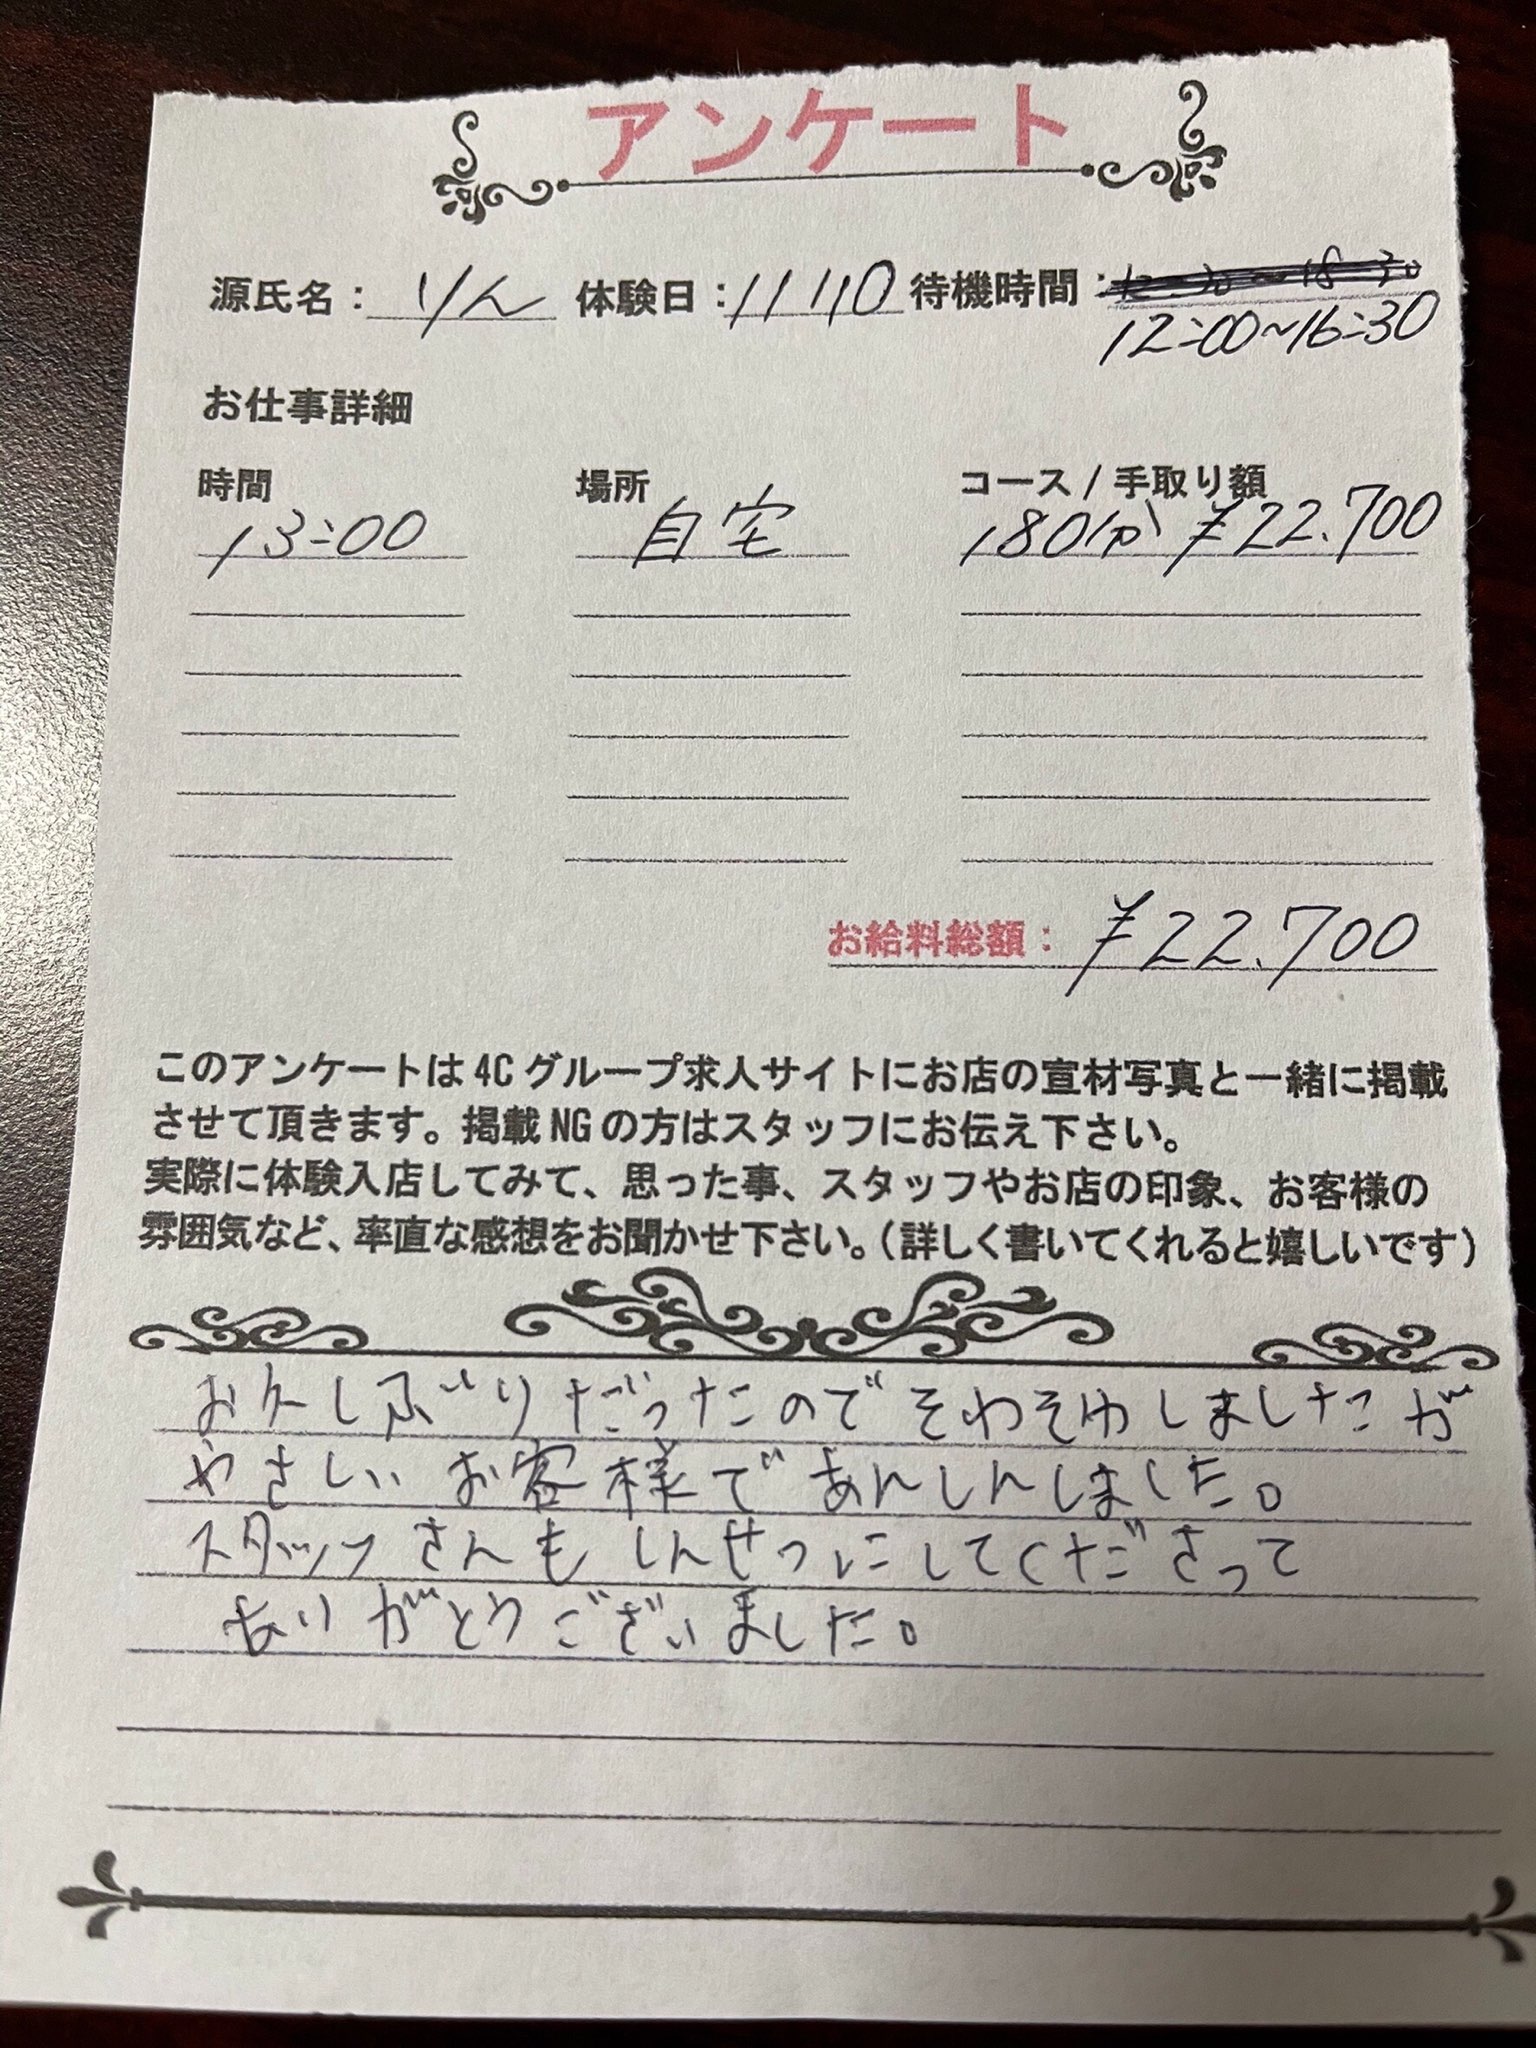 アンケート
源氏名：りん 体験日：11/10 待機時間：
12:00~16:30
お仕事詳細
時間 場所 コース/手取り額
13:00 自宅 180分 ¥22.700
お給料総額： ¥22.700
このアンケートは4Cグループ求人サイトにお店の宣材写真と一緒に掲載
させて頂きます。掲載NGの方はスタッフにお伝え下さい。
実際に体験入店してみて、思った事、スタッフやお店の印象、お客様の
雰囲気など、率直な感想をお聞かせ下さい。（詳しく書いてくれると嬉しいです）
お久しぶりだったのでそわそわしましたが
やさしいお客様であんしんしました。
スタッフさんもしんせつにしてくださって
ありがとうございました。